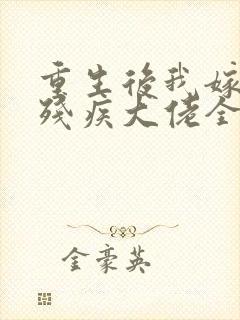 重生後我嫁
殘疾大佬全
金豪英